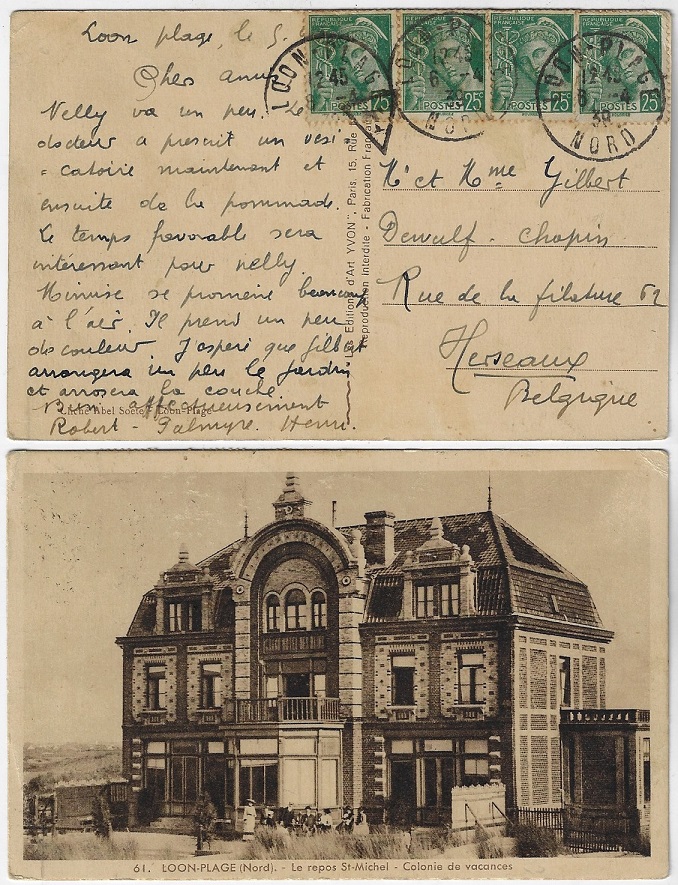 Loon plage, le 5.
Chers amis
Nelly va un peu. Le
docteur a prescrit un vesi
= catoire maintenant et
ensuite de la pommade.
Le temps favorable sera
intéressant pour nelly.
Minuse se promène beaucoup
à l'air. Il prend un peu
de couleur. J'espère que Gilbert
arrangera un peu le jardin
et arrosera la couche
Bien affectueusement
Robert - Palmyre. Henri.
Cliché Abel Soete - Loon-Plage
Les Editions d'Art YVON", Paris, 15, Rue
Reproduction Interdite - Fabrication Française
REPUBLIQUE FRANCAISE
POSTES 25c
REPUBLIQUE FRANCAISE
POSTES 25c
REPUBLIQUE FRANCAISE
POSTES 25c
REPUBLIQUE FRANCAISE
POSTES 25
LOON-PLAGE
12 45
NORD
12 45
6 -4
39
NORD
LOON-PLAGE
12 45
6 -4
39
NORD
Mr et Mme Gilbert
Dewulf - Chopin
Rue de la filature 62
Herseaux
Belgique
61. LOON-PLAGE (Nord). - Le repos St-Michel - Colonie de vacances